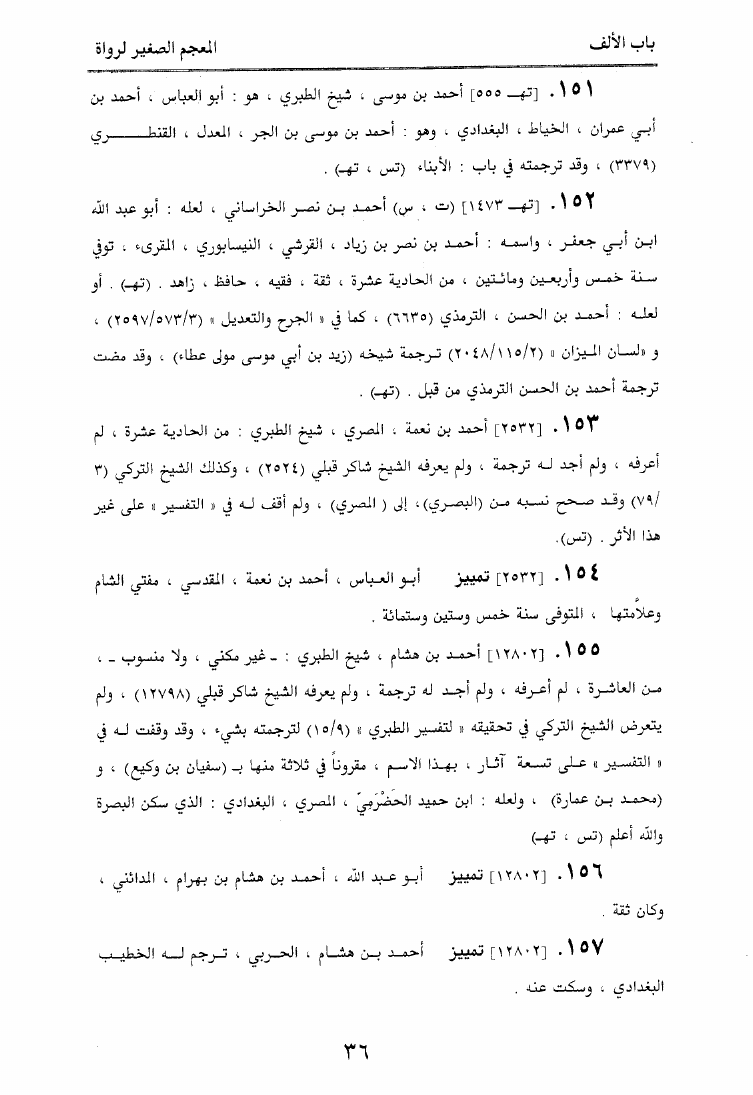 باب الألف
المعجم الصغير لرواة
١٥١. [تهـ ٥٥٥] أحمد بن موسى ، شيخ الطبري ، هو : أبو العباس ، أحمد بن
أبي عمران ، الخياط ، البغدادي ، وهو : أحمد بن موسى بن الجر ، المعدل ، القنطـــــري
(٣٣٧٩) ، وقد ترجمته في باب : الأبناء (تس ، تهـ) .
١٥٢. [تهـ ١٤٧٣] (ت ، س) أحمد بـن نصـر الخراساني ، لعله : أبو عبد الله
ابـن أبـي جعفـر ، واسمـه : أحمـد بن نصر بن زياد ، القرشي ، النيسابوري ، المقرىء ، توفي
سـنة خمـس وأربعـين ومائـتين ، من الحادية عشرة ، ثقة ، فقيه ، حافظ ، زاهد . (تهـ) . أو
لعلـه : أحمـد بن الحسن ، الترمذي (٦٦٣٥) ، كما في « الجرح والتعديل » (٢٥٩٧/٥٧٣/٣) ،
و «لسـان المـيزان » (٢٠٤٨/١١٥/٢) تـرجمة شيخه (زيد بن أبي موسى مولى عطاء) ، وقد مضت
ترجمة أحمد بن الحسن الترمذي من قبل . (تهـ) .
١٥٣. [٢٥٣٢] أحمد بن نعمة ، المصري ، شيخ الطبري : من الحادية عشرة ، لم
أعرفه ، ولم أجد لـه ترجمة ، ولم يعرفه الشيخ شاكر قبلي (٢٥٢٤) ، وكذلك الشيخ التركي (٣
/٧٩) وقـد صـحح نسبه مـن (البصـري)، إلى ( المصري) ، ولم أقف لـه في « التفسير » على غير
هذا الأثر . (تس).
١٥٤. [٢٥٣٢] تمييز أبـو العـباس ، أحمد بن نعمة ، المقدسي ، مفتي الشام
وعلاّمتها ، المتوفى سنة خمس وستين وستمائة .
١٥٥. [١٢٨٠٢] أحمـد بن هشام ، شيخ الطبري : ـ غير مكني ، ولا منسوب ـ ،
مـن العاشـرة ، لم أعـرفه ، ولم أجـد له ترجمة ، ولم يعرفه الشيخ شاكر قبلي (١٢٧٩٨) ، ولم
يتعرض الشيخ التركي في تحقيقه « لتفسير الطبري » (١٥/٩) لترجمته بشيء ، وقد وقفت لـه في
« التفسير » عـلى تسـعة آثـار ، بهـذا الاسـم ، مقروناً في ثلاثة منها بـ (سفيان بن وكيع) ، و
(محمـد بـن عمارة) ، ولعله : ابن حميد الحَضْرَمِيّ ، المصري ، البغدادي : الذي سكن البصرة
والله أعلم (تس ، تهـ)
١٥٦. [١٢٨٠٢] تمييز أبـو عـبد الله ، أحمـد بن هشام بن بهرام ، المدائني ،
وكان ثقة .
١٥٧. [١٢٨٠٢] تمييز أحمـد بـن هشـام ، الحـربي ، تـرجم لـه الخطيـب
البغدادي ، وسكت عنه .
٣٦